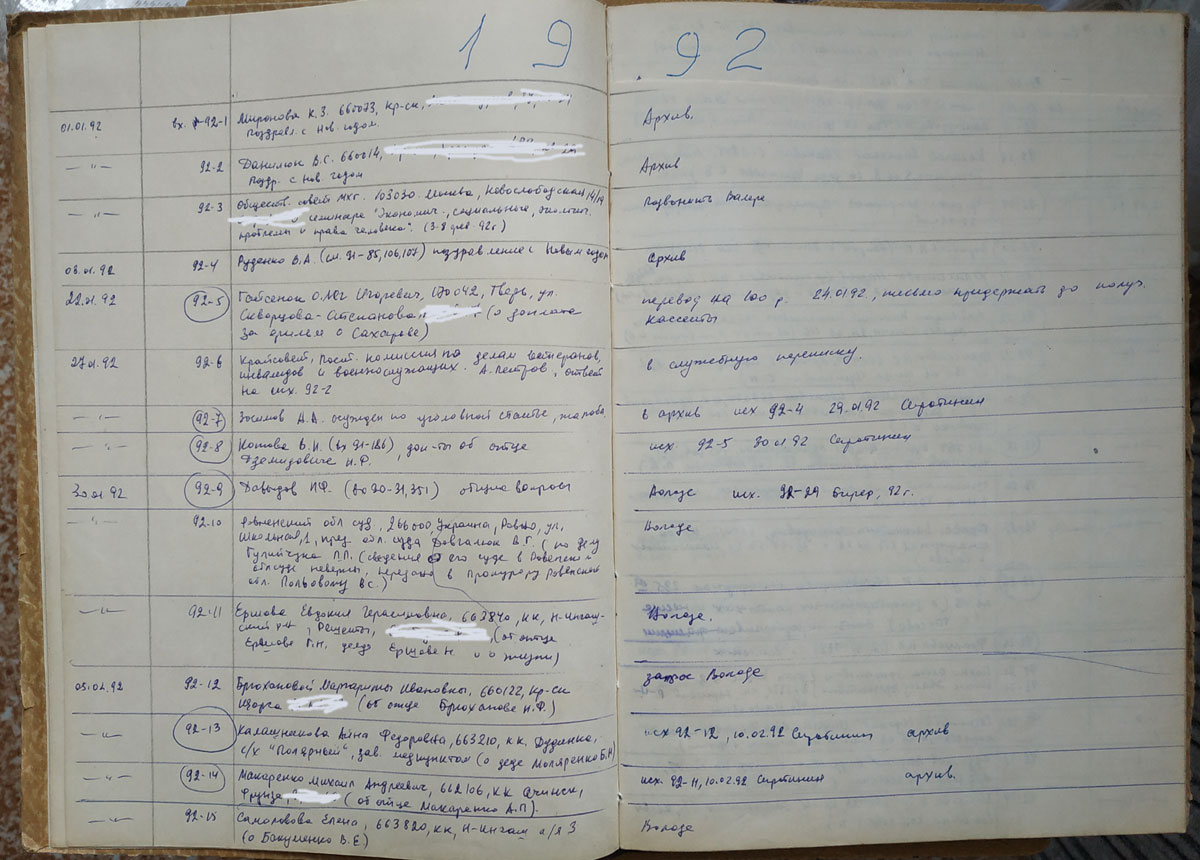 1992
01.01.92 вх. 92-1 Миронова К.З. 660073, Кр-ск, Архив.
Поздравл. с Нов. годом.
—"— 92-2 Данилюк В.С. 660014, Архив
Поздр. с Нов. годом
—"— 92-3 Обществ. совет МХГ. 103030. Москва, Новослободская 14/19 Позвонить
семинаре "Экономич., социальные,
проблемы и права человека". (3-8 92г)
08.01.92 92-4 Руденко В.А. (см. 91-85,106,107) поздравление с Новым годом Архив
22.01.92 92-5 Гайсенок Олег Игоревич, 170042, Тверь, ул. перевод на 100 р. 24.01.92, письмо придержать до получ.
Скворцова-Степанова (о доплате кассеты
за фильм о Сахарове)
27.01.92 92-6 Крайсовет, пост. комиссия по делам ветеранов, в служебную переписку.
инвалидов и военнослужащих. А. Петров, ответ
на исх. 92-2
—"— 92-7 Зосимов А.А. осужден по уголовной статье, жалоба. в архив исх 92-4 29.01.92 Сиротинин
—"— 92-8 Котова В.И. (вх 91-186), об отце исх. 92-5 30.01.92 Сиротинин
Дземидовиче И.Ф.
30.01.92 92-9 Давыдов И.Ф. общие вопросы Володе исх. 92-29 92г.
—"— 92-10 Ровенский обл суд, 266000, Украина, Ровно, ул. Володе
Школьная, 1, пред. обл. суда Довгалюк В.Г. (по делу
П.П. (сведения о его суде в Ровенском
облсуде неверны, передано в Прокурору Ровенской
обл. Польовому В.С.)
—"— 92-11 Ершова Евдокия Герасимовна, 663840, КК, Н-Ингаш- Володе.
ский р-н, Решоты, (от отце
Ершове Г.Н, деде Ершове Н и о жизни)
05.02.92 92-12 Брюхановой Маргариты Ивановны, 660122, Кр-ск запрос Володе
Щорса (об отце Брюханове И.Ф.)
—"— 92-13 Калашникова Анна Федоровна, 663210, КК. Дудинка, исх 92-12, 10.02.92 Сиротинин архив
с/х "Полярный", зав. медпунктом (о деде Моляренко Б.Н
—"— 92-14 Макаренко Михаил Андреевич, 662106, КК Ачинск, исх. 92-11, 10.02.92 Сиротинин архив.
Фрунзе, (об отце Макаренко А.П).
—"— 92-15 Елена, 663820, КК, Н-Ингаш п/я 3 Володе
(о Бакуменко В.Е)